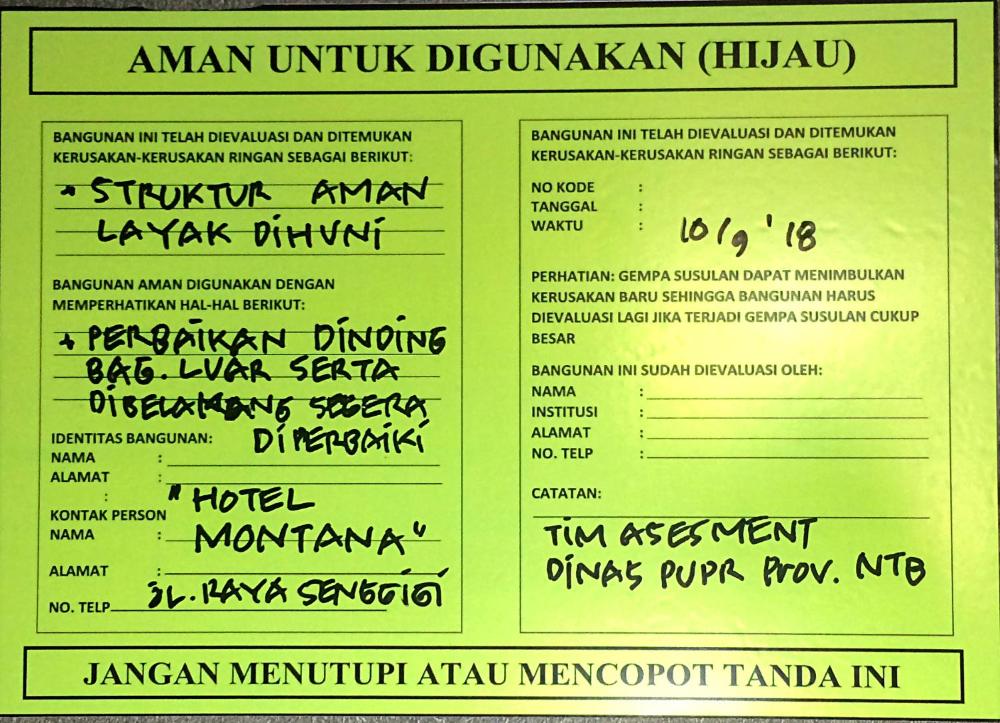 AMAN UNTUK DIGUNAKAN (HIJAU)
BANGUNAN INI TELAH DIEVALUASI DAN DITEMUKAN
KERUSAKAN-KERUSAKAN RINGAN SEBAGAI BERIKUT:
* STRUKTUR AMAN
LAYAK DIHUNI
BANGUNAN AMAN DIGUNAKAN DENGAN
MEMPERHATIKAN HAL-HAL BERIKUT:
+ PERBAIKAN DINDING
BAG. LUAR SERTA
DIBELAKANG SEGERA
DIPERBAIKI
IDENTITAS BANGUNAN:
NAMA :
ALAMAT :
:
"HOTEL
KONTAK PERSON
NAMA : MONTANA"
ALAMAT :
NO. TELP JL. RAYA SENGGIGI
BANGUNAN INI TELAH DIEVALUASI DAN DITEMUKAN
KERUSAKAN-KERUSAKAN RINGAN SEBAGAI BERIKUT:
NO KODE :
TANGGAL :
WAKTU : 10/9 '18
PERHATIAN: GEMPA SUSULAN DAPAT MENIMBULKAN
KERUSAKAN BARU SEHINGGA BANGUNAN HARUS
DIEVALUASI LAGI JIKA TERJADI GEMPA SUSULAN CUKUP
BESAR
BANGUNAN INI SUDAH DIEVALUASI OLEH:
NAMA :
INSTITUSI :
ALAMAT :
NO. TELP :
CATATAN:
TIM ASESMENT
DINAS PUPR PROV. NTB
JANGAN MENUTUPI ATAU MENCOPOT TANDA INI